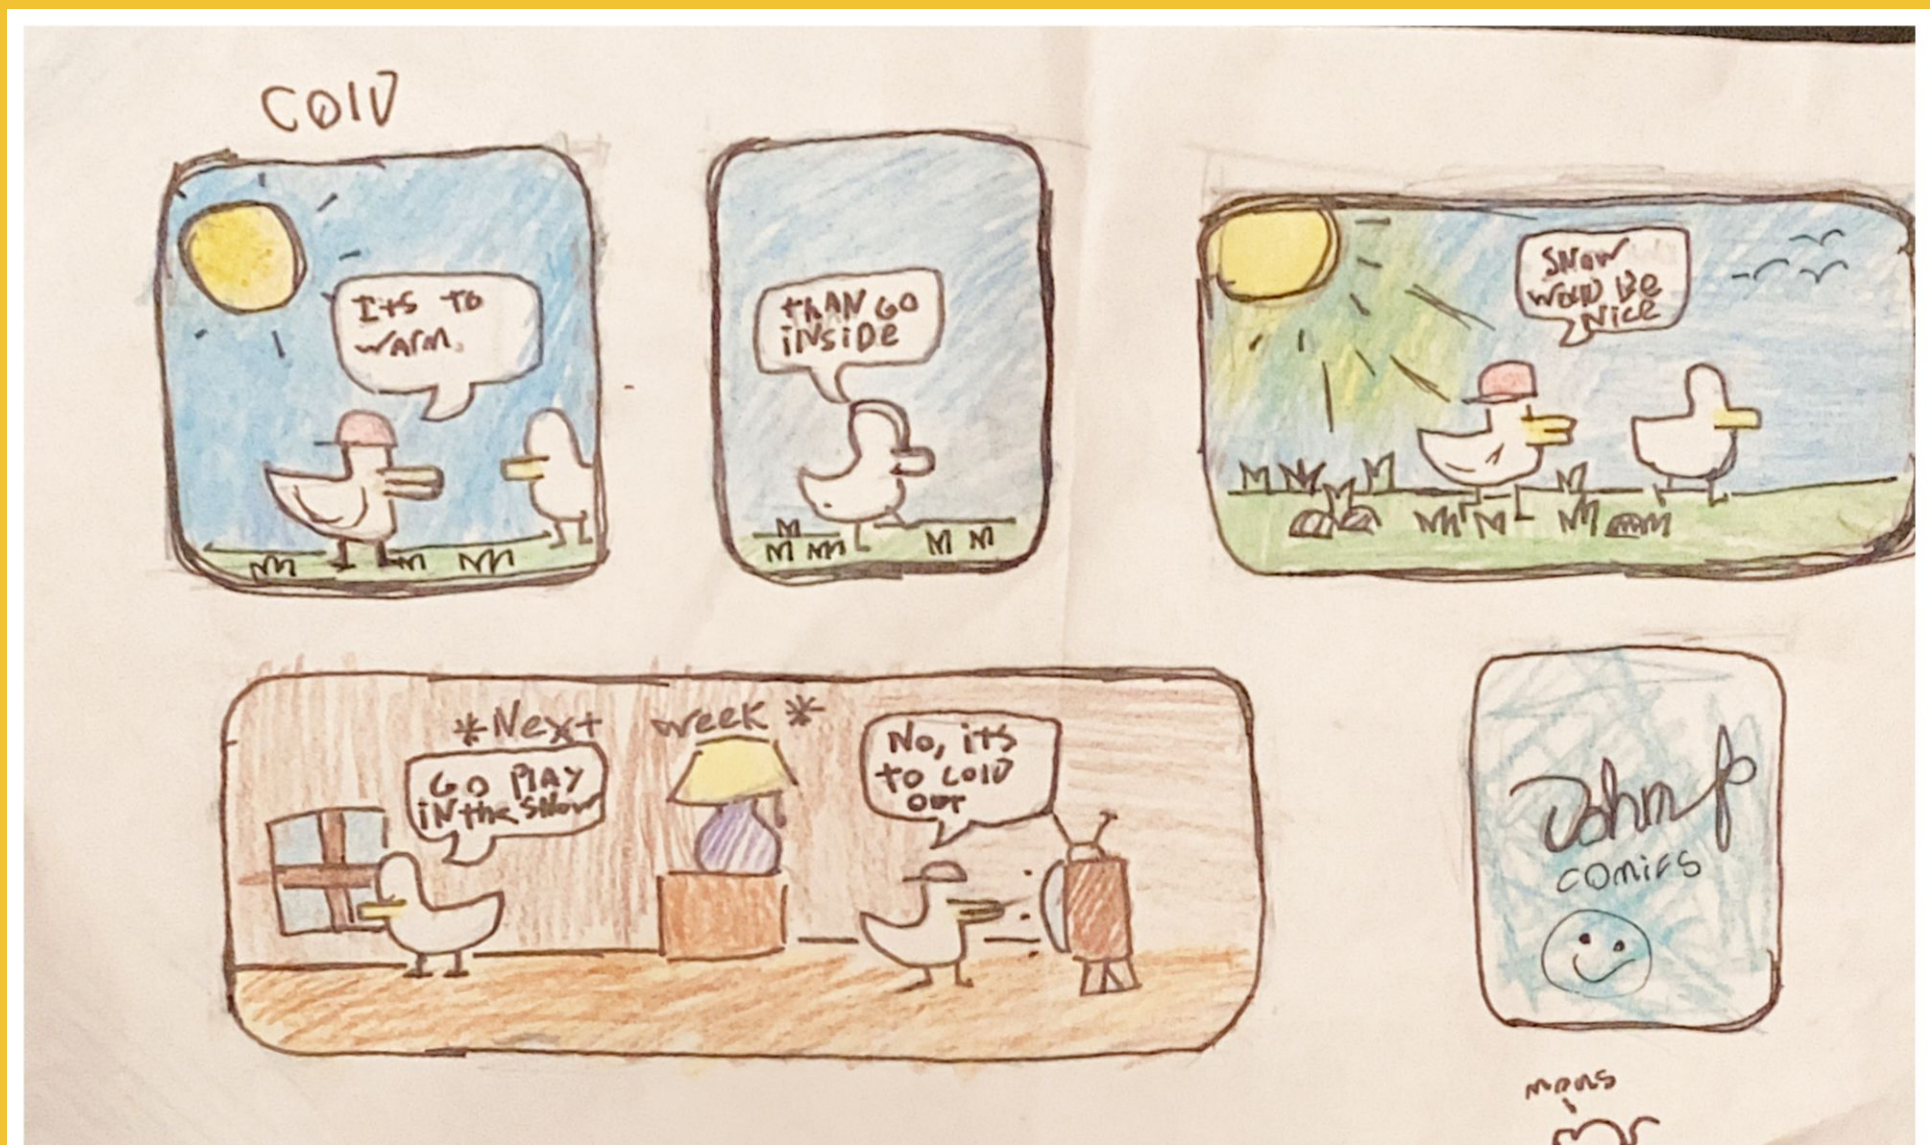 COlD
Its to
warm.
than GO
iNSiDe
Snow
woulD Be
Nice
*Next week*
GO PlAy
iN the Snow
No, its
to colD
out
John P
comics